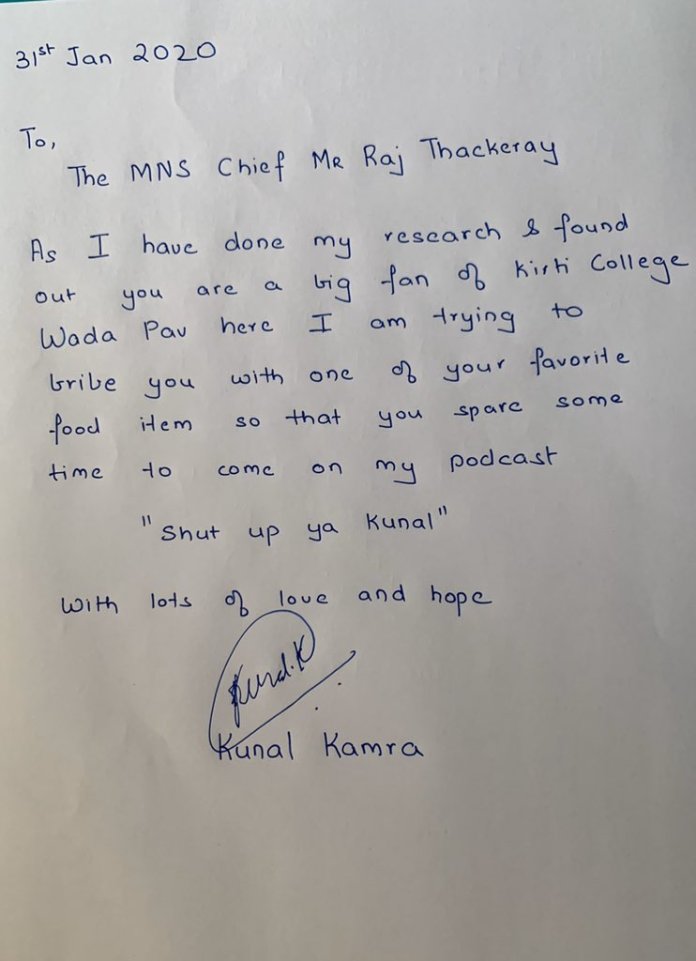 31st Jan 2020
To,
The MNS Chief MR Raj Thackeray
As I have done my research & found
out you are a big fan of Kirti College
Wada Pav here I am trying to
bribe you with one of your favorite
food item so that you spare some
time to come on my podcast
"Shut up ya Kunal"
With lots of love and hope
Kunal.K
Kunal Kamra